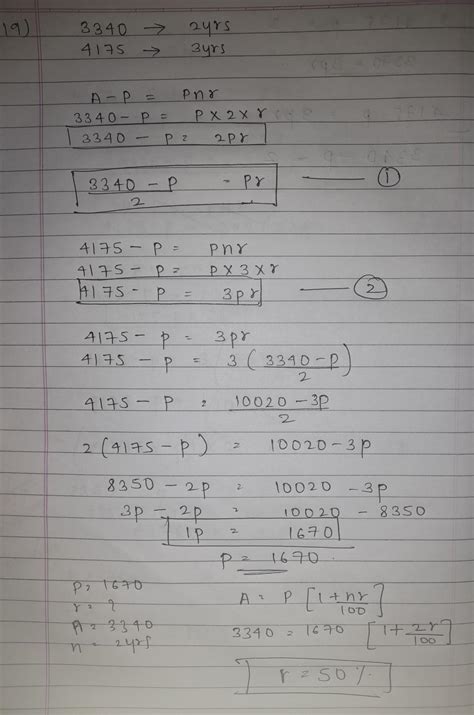 19) 3340 → 2yrs
4175 → 3yrs
A - P = Pnr
3340 - P = P x 2 x r
3340 - P = 2pr
3340 - P / 2 - Pr ①
4175 - P = pnr
4175 - P = P x 3 x r
4175 - P = 3pr ②
4175 - P = 3pr
4175 - P = 3 ( 3340 - P / 2 )
4175 - P = 10020 - 3p / 2
2 ( 4175 - P ) = 10020 - 3p
8350 - 2p = 10020 - 3p
3p - 2p = 10020 - 8350
1p = 1670
P = 1670.
P = 1670
r = ?
A = 3340
n = 2yrs
A = P [ 1 + nr / 100 ]
3340 = 1670 [ 1 + 2r / 100 ]
r = 50 %.